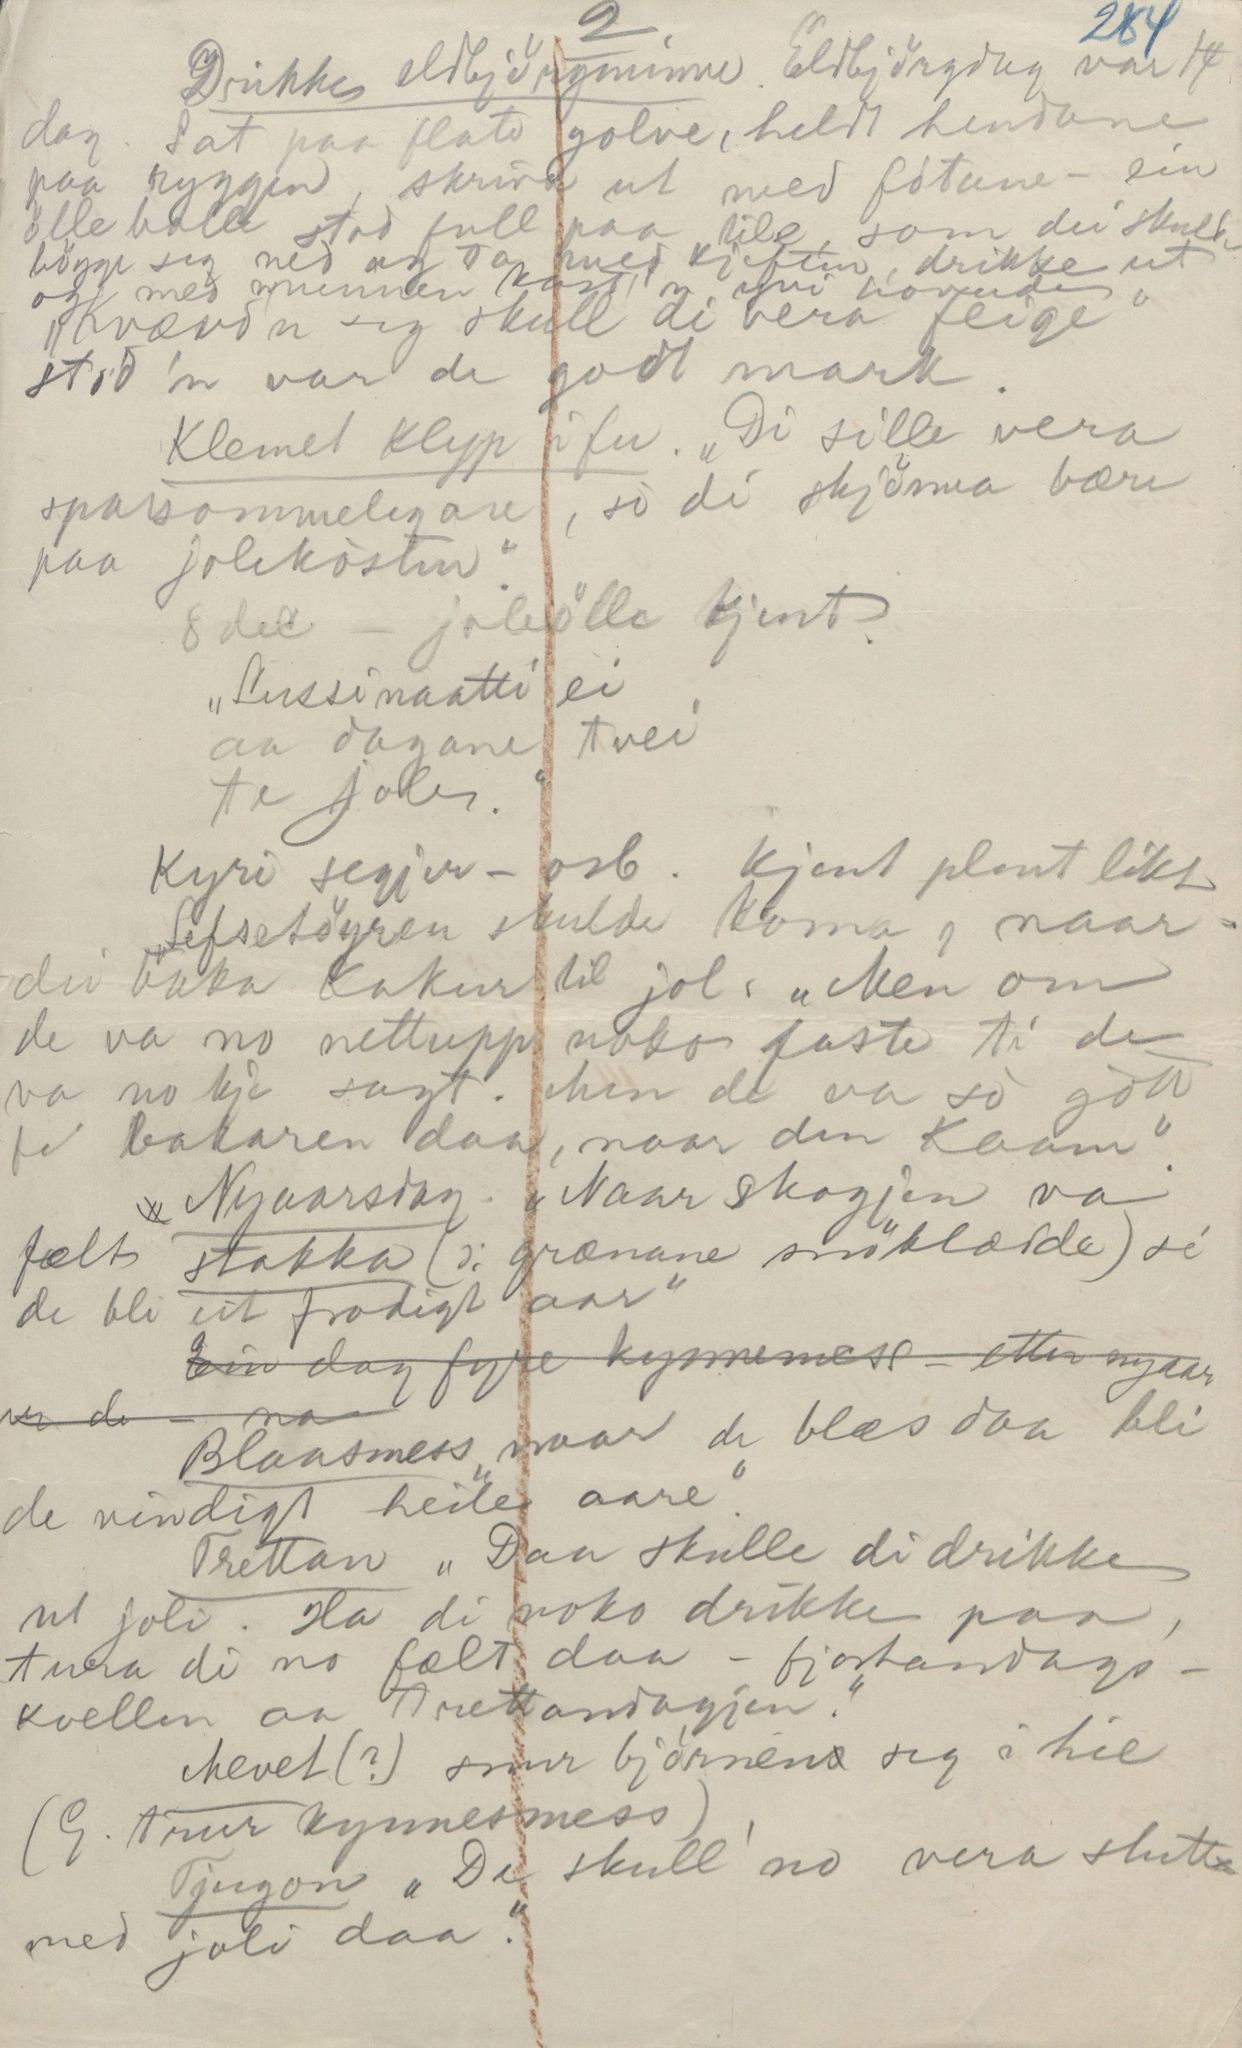 2.
284
Drikke eldbjörgminne. Eldbjörgdag var 14
dag. Sat paa flate golve, heldt hendane
paa ryggin, skriva ut med fötune - ein
ölle bolle stod full paa tile, som dei skulde
böyge seg ned og ta med kjeften, drikke ut
og med munnen kast'n yvi hovude
"kvævd'n seg skull di vera feige"
stod'n var de godt mark.
Klemet klypp i fu. "Di sille vera
sparsommelegare, so di skjöna bære
paa jolekosten".
8 dec - joleölle kjent.
"Lussinaatti ei
aa dagane tvei
te joler."
Kyri segjer - osb. kjent plent likt
"Lefsetöyren skulde koma, naar
dei baka kakur til jol. "Men om
de va no nettupp noko faste ti de
va no kje sagt. Men de va so gott
fe bakaren daa, naar den kaam".
x Nyaarsdag. "Naar skogjen va
fælt stakka (ɔ: grænane snöklædde) so
de bli eit frodigt aar"
Ein dag fyre kynnemess - etter nyaar
er de - no
Blaasmess, "naar de blæs daa bli
de vindigt heile aare"
Trettan "Daa skulle di drikke
ut joli. Ha di noko drikke paa,
tura di no fælt daa - fjortandags-
kvellen aa Trettandagjen."
Mevet (?) snur björnen seg i hie
(G. trur kynnesmess)
Tjugon "De skull' no vera slutt
med joli daa."